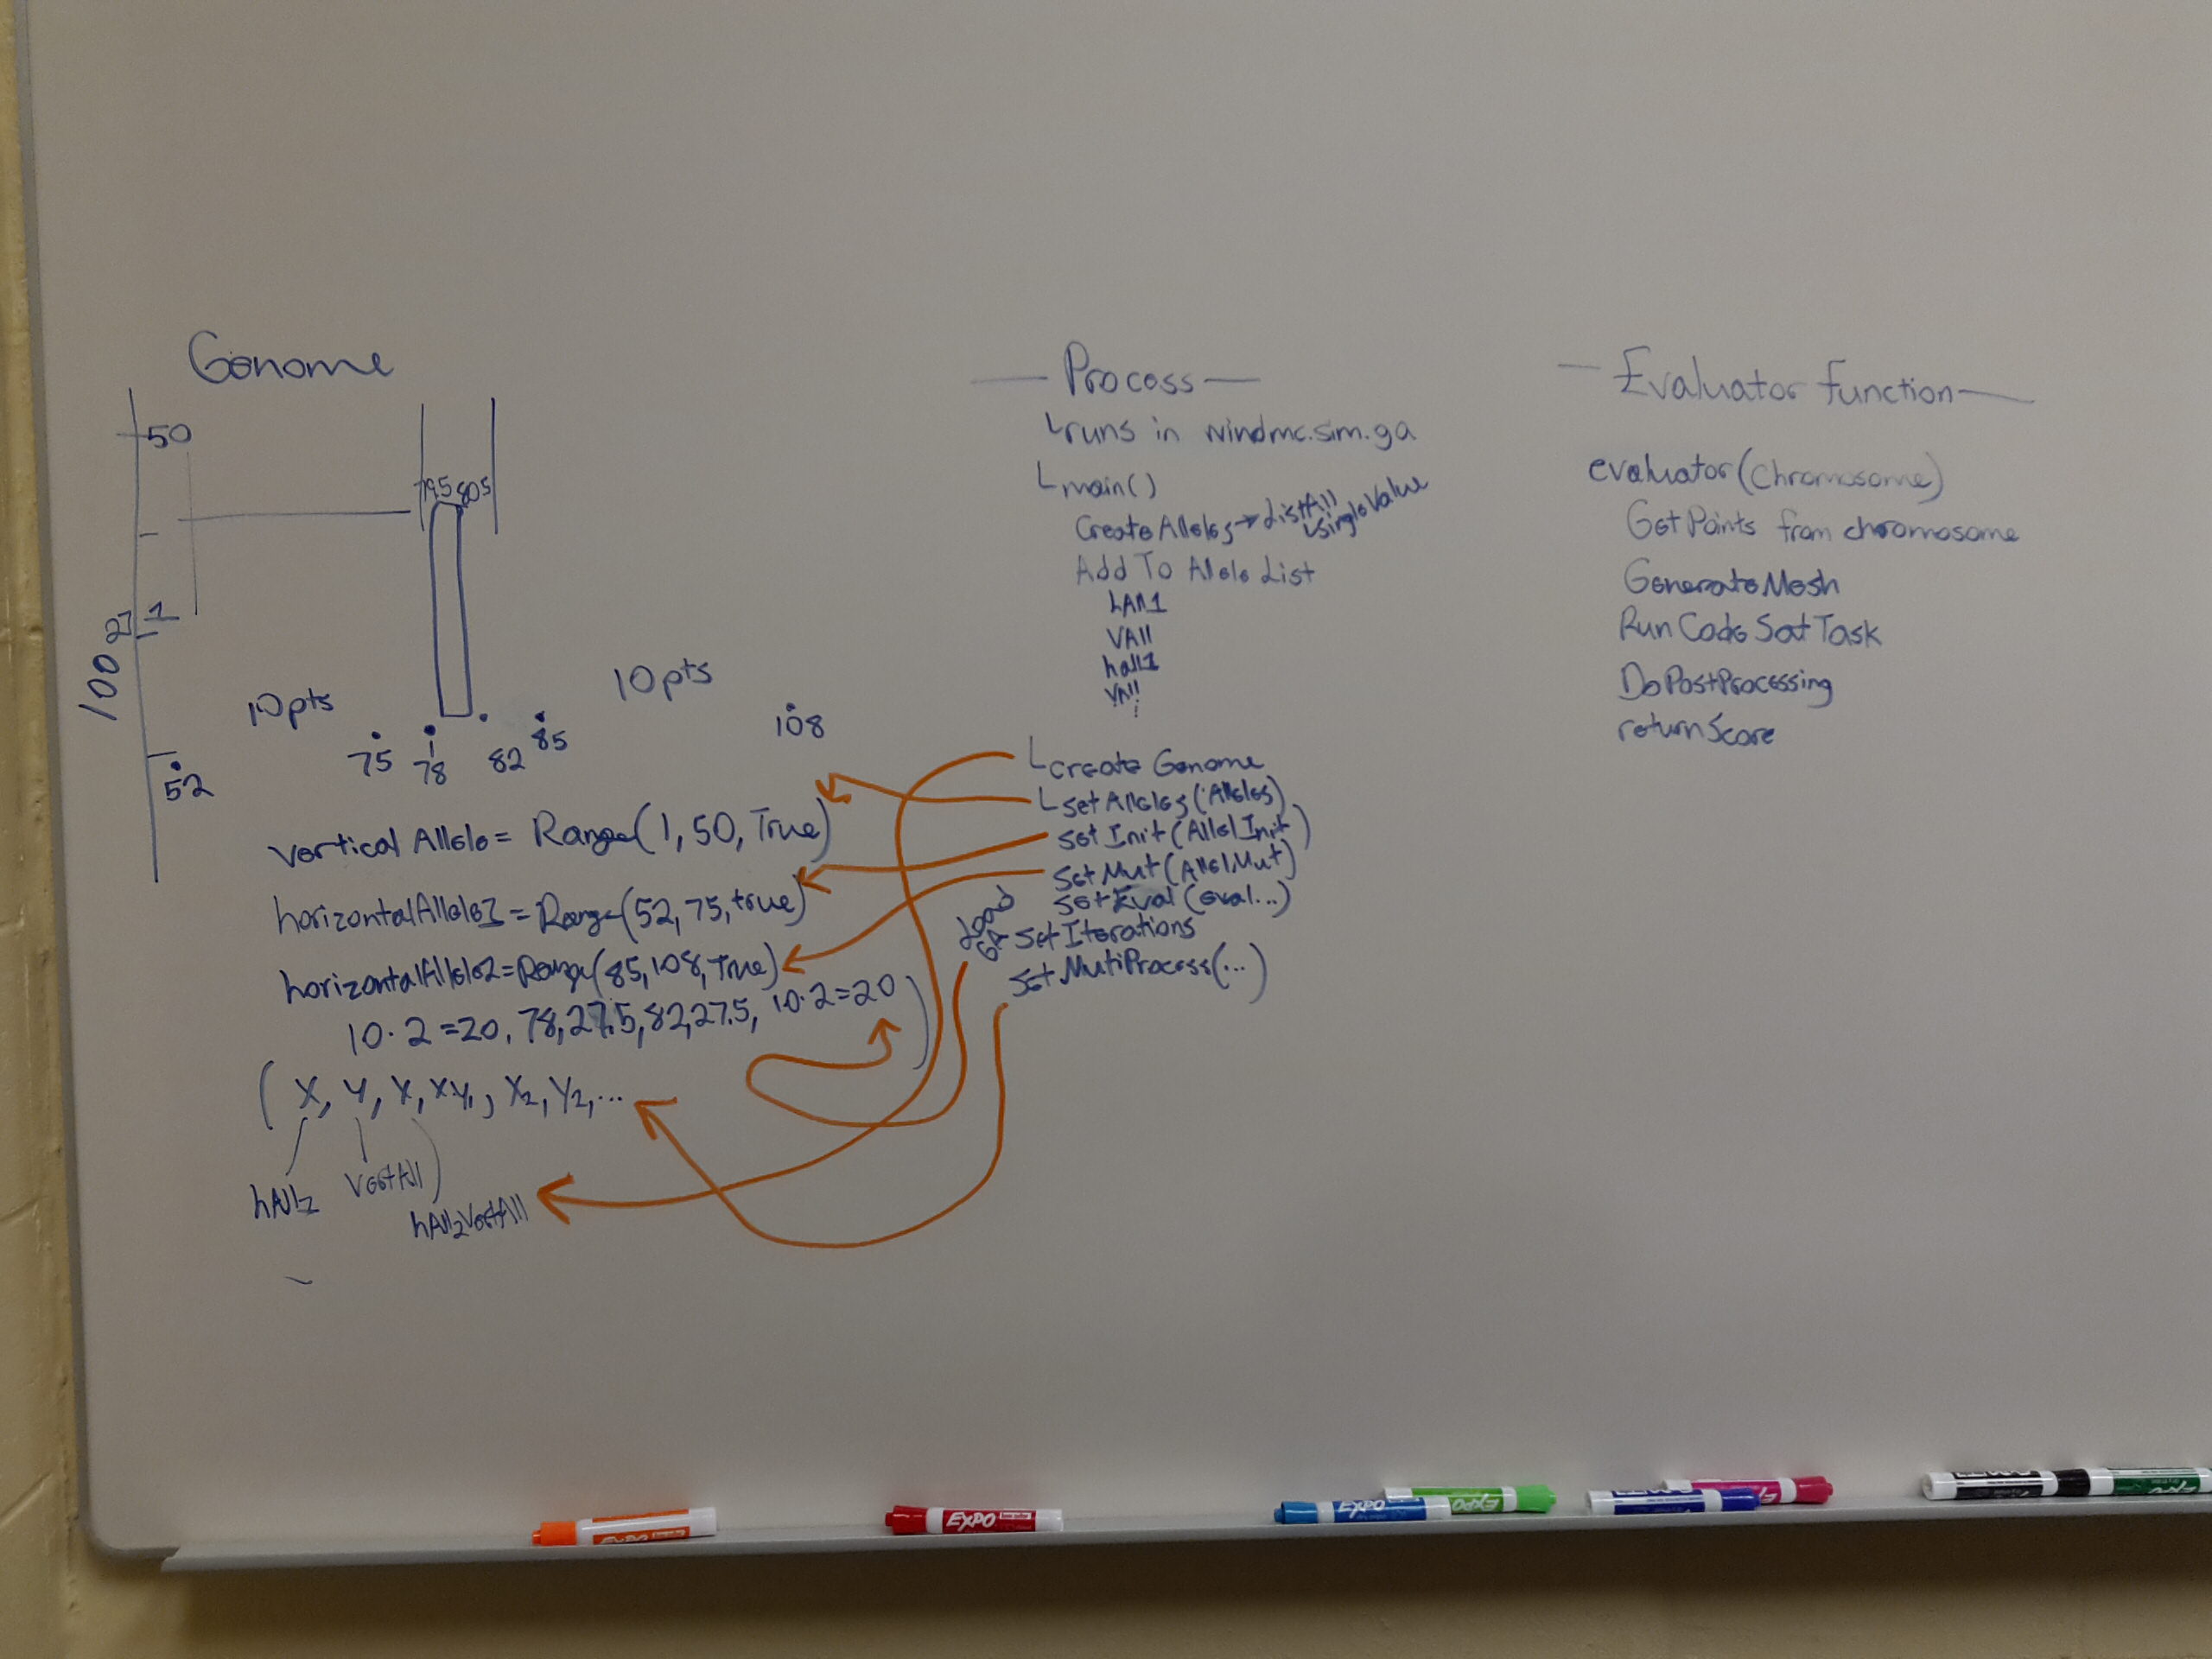 Genome
50
79.5 80.5
1
2
100
10pts
10pts
75
78
82
85
108
52
vertical Allele = Range(1, 50, True)
horizontalAllele1 = Range(52, 75, true)
horizontalAllele2 = Range(85, 108, True)
10·2=20, 78, 27.5, 82, 27.5, 10·2=20)
(X, Y, X, X Y1, X2, Y2, ...
hAll2 VertAll
hAll2VertAll
— Process —
runs in windmc.sim.ga
main()
Create Alleles → ListAll
SingleValue
Add To Allele List
hAll1
VAll
hall1
VAll
Create Genome
Set Alleles (Alleles)
Set Init (AllelInit)
Set Mut (AllelMut)
Set Eval (eval...)
GA Set Iterations
Set MultiProcess(...)
— Evaluator function —
evaluator(Chromosome)
Get Points from chromosome
Generate Mesh
Run Code Sat Task
DoPostProcessing
return Score
EXPO
EXPO
EXPO
EXPO